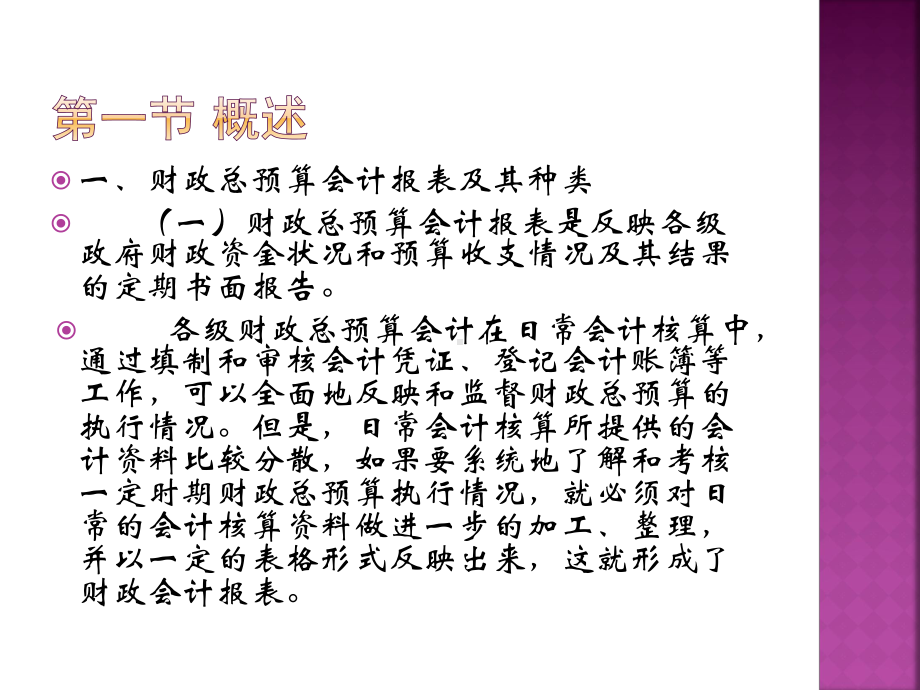 第一节 概述
一、财政总预算会计报表及其种类
（一）财政总预算会计报表是反映各级
政府财政资金状况和预算收支情况及其结果
的定期书面报告。
各级财政总预算会计在日常会计核算中，
通过填制和审核会计凭证、登记会计账簿等
工作，可以全面地反映和监督财政总预算的
执行情况。但是，日常会计核算所提供的会
计资料比较分散，如果要系统地了解和考核
一定时期财政总预算执行情况，就必须对日
常的会计核算资料做进一步的加工、整理，
并以一定的表格形式反映出来，这就形成了
财政会计报表。